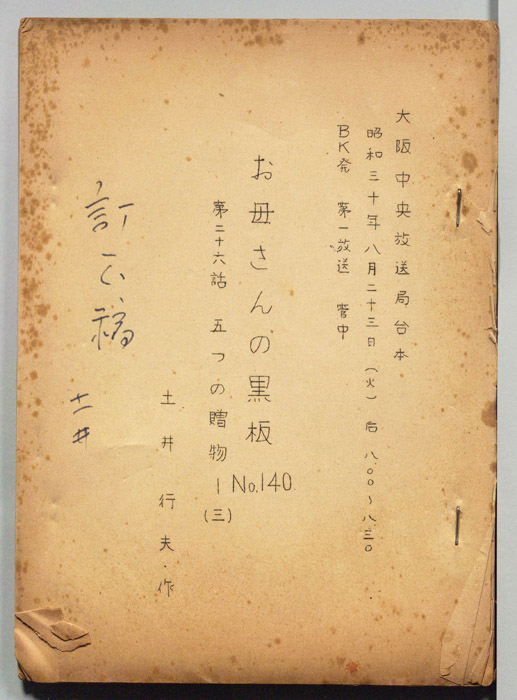 大阪中央放送局台本
昭和三十年八月二十三日（火）后八・〇〇～八・三〇
BK発 第一放送 管中
お母さんの黒板 No.140
第二十六話 五つの贈物―（三）
土井行夫・作
訂正稿
土井